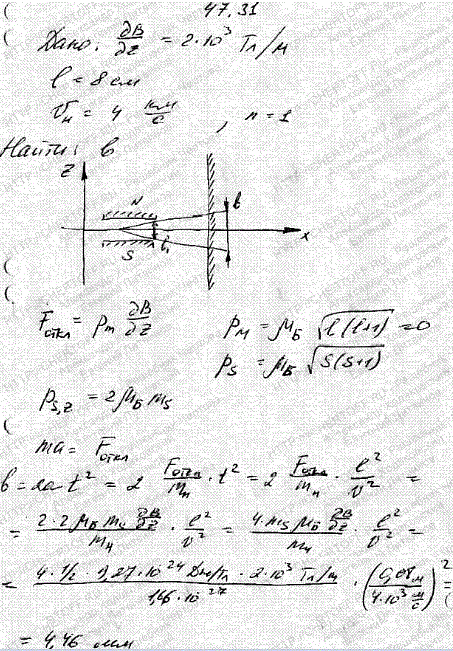 47.31
Дано: ∂B/∂z = 2·10³ Тл/м
l = 8 см
v_н = 4 км/с , n = 1
Найти: b
z
N
b
b₁
x
S
F_откл = p_m ∂B/∂z
p_M = μ_Б √(l(l+1)) = 0
p_S = μ_Б √(S(S+1))
p_{S,z} = 2 μ_Б m_S
ma = F_откл
b = 2a t² = 2 F_откл/m_н · t² = 2 F_откл/m_н · l²/v² =
= 2·2 μ_Б m_S ∂B/∂z / m_н · l²/v² = 4·m_S μ_Б ∂B/∂z / m_н · l²/v² =
= 4·1/2·9,27·10²⁴ Дж/Тл · 2·10³ Тл/м / 1,66·10⁻²⁷ · (0,08 м / 4·10³ м/с)² =
= 4,46 мм